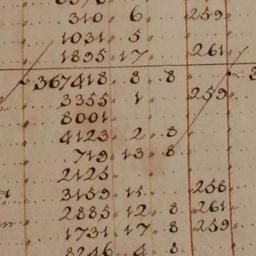 310 . 6 . 259
1031 . 5
1895 . 17 . 261
367418 . 8 . 8
3355 . 1 . 259
8001
4123 . 2 . 8
719 . 13 . 8
2125
3159 . 11 . 258
2885 . 12 . 8 . 261
1731 . 17 . 8 . 259
8246 . 4 . 8